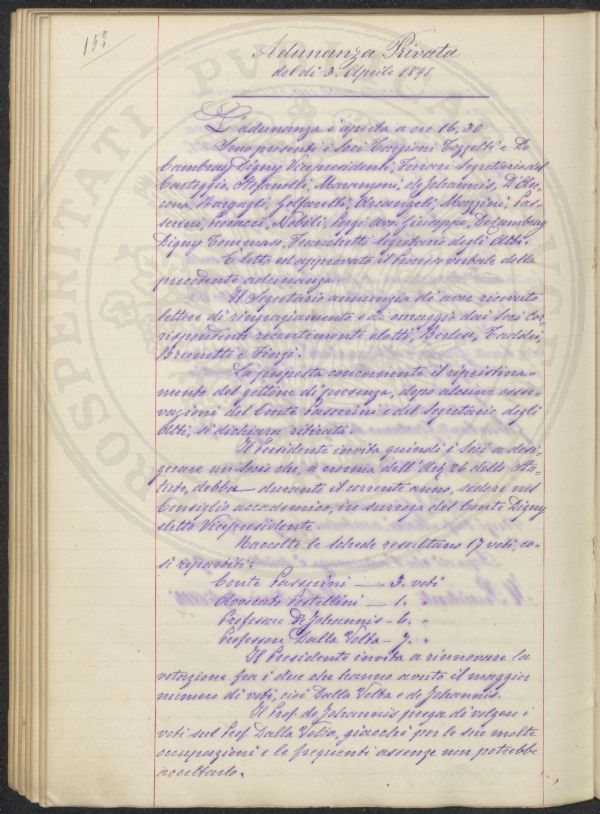 153
Adunanza Privata
del dì 3. Aprile 1895.
L'adunanza è aperta a ore 16.30
Sono presenti i Soci Targioni Tozzetti e De
Cambray Digny Vicepresidenti, Ferrari Segretario del
Carteggio, Stefanelli, Marangoni, de Johannis, D'An-
cona, Bargagli, Golfarelli, Arcangeli, Mazzini, Pas-
serini, Nobili, Pozzi avv. Giuseppe, De Cambray
Digny Tommaso, Franchetti Segretario degli Atti.
È letto ed approvato il Processo verbale della
precedente adunanza.
Il Segretario annunzia di aver ricevuto
lettere di ringraziamento e di omaggio dai Soci Cor-
rispondenti recentemente eletti, Berlese, Taddei,
Brunetti e Finzi.
La proposta concernente il ripristina-
mento del gettone di presenza, dopo alcune osser-
vazioni del Conte Passerini e del Segretario degli
Atti, si dichiara ritirata.
Il Presidente invita quindi i Soci a desi-
gnare un Socio che, a norma dell'Art. 26 dello Sta-
tuto, debba durante il corrente anno, sedere nel
Consiglio accademico, in surroga del Conte Digny
eletto Vicepresidente.
Raccolte le schede resultano 17 voti, co-
sì repartiti:
Conte Passerini — 3. voti
Avvocato Pestellini — 1. "
Professore de Johannis — 6. "
Professore Dalla Volta — 7. "
Il Presidente invita a rinnovare la
votazione fra i due che hanno avuto il maggior
numero di voti, cioè Dalla Volta e de Johannis.
Il Prof. de Johannis prega di volgere i
voti sul Prof. Dalla Volta, giacchè per le sue molte
occupazioni e le frequenti assenze non potrebbe
accettarlo.